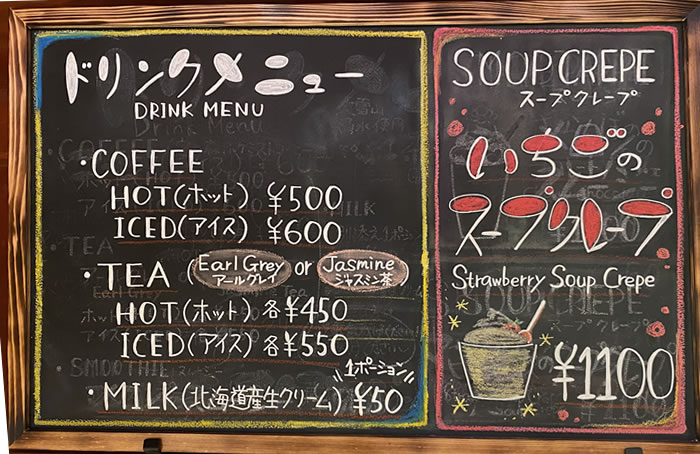 ドリンクメニュー
DRINK MENU
・COFFEE
HOT(ホット) ¥500
ICED(アイス) ¥600
・TEA (Earl Grey アールグレイ or Jasmine ジャスミン茶)
HOT(ホット)各¥450
ICED(アイス)各¥550
1ポーション
・MILK(北海道産生クリーム) ¥50
SOUP CREPE
スープクレープ
いちごの
スープクレープ
Strawberry Soup Crepe
¥1100